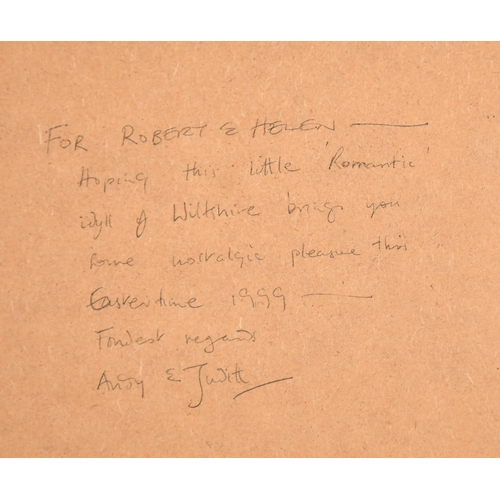 FOR ROBERT & HELEN —
Hoping this little 'Romantic'
idyll of Wiltshire brings you
some nostalgic pleasure this
Eastertime 1999 —
Fondest regards
Andy & Judith